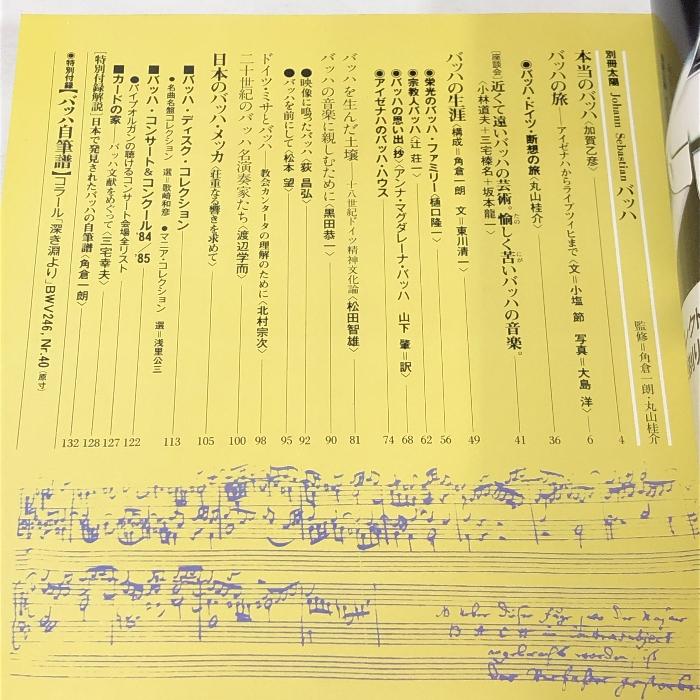 別冊太陽 Johann Sebastian バッハ
監修＝角倉一朗・丸山桂介
本当のバッハ〈加賀乙彦〉 4
バッハの旅――アイゼナハからライプツィヒまで〈文＝小塩 節 写真＝大島 洋〉 6
●バッハ・ドイツ・断想の旅〈丸山桂介〉 36
[座談会]近くて遠いバッハの芸術。愉しく苦いバッハの音楽。 41
〈小林道夫＋三宅榛名＋坂本龍一〉
バッハの生涯〈構成＝角倉一朗 文＝東川清一〉 49
●栄光のバッハ・ファミリー〈樋口隆一〉 56
●宗教人バッハ〈辻 荘一〉 62
●バッハの思い出〈抄〉アンナ・マグダレーナ・バッハ 山下 肇＝訳 68
●アイゼナハのバッハ・ハウス 74
バッハを生んだ土壌――十八世紀ドイツ精神文化論〈松田智雄〉 81
バッハの音楽に親しむために〈黒田恭一〉 90
●映像に鳴ったバッハ〈荻 昌弘〉 92
●バッハを前にして〈松本 望〉 95
ドイツ・ミサとバッハ――教会カンタータの理解のために〈北村宗次〉 98
二十世紀のバッハ名演奏家たち〈渡辺学而〉 100
日本のバッハ・メッカ〈荘重なる響きを求めて〉 105
■バッハ・ディスク・コレクション 113
●名曲名盤コレクション 選＝歌崎和彦 ●マニア・コレクション 選＝浅里公三
■バッハ・コンサート&コンクール'84/'85 122
●パイプオルガンの聴けるコンサート会場全リスト
■カードの家――バッハ文献をめぐって〈三宅幸夫〉 127
[特別付録解説]日本で発見されたバッハの自筆譜〈角倉一朗〉 128
●特別付録【バッハ自筆譜】コラール「深き淵より」BWV246, Nr.40〈原寸〉 132